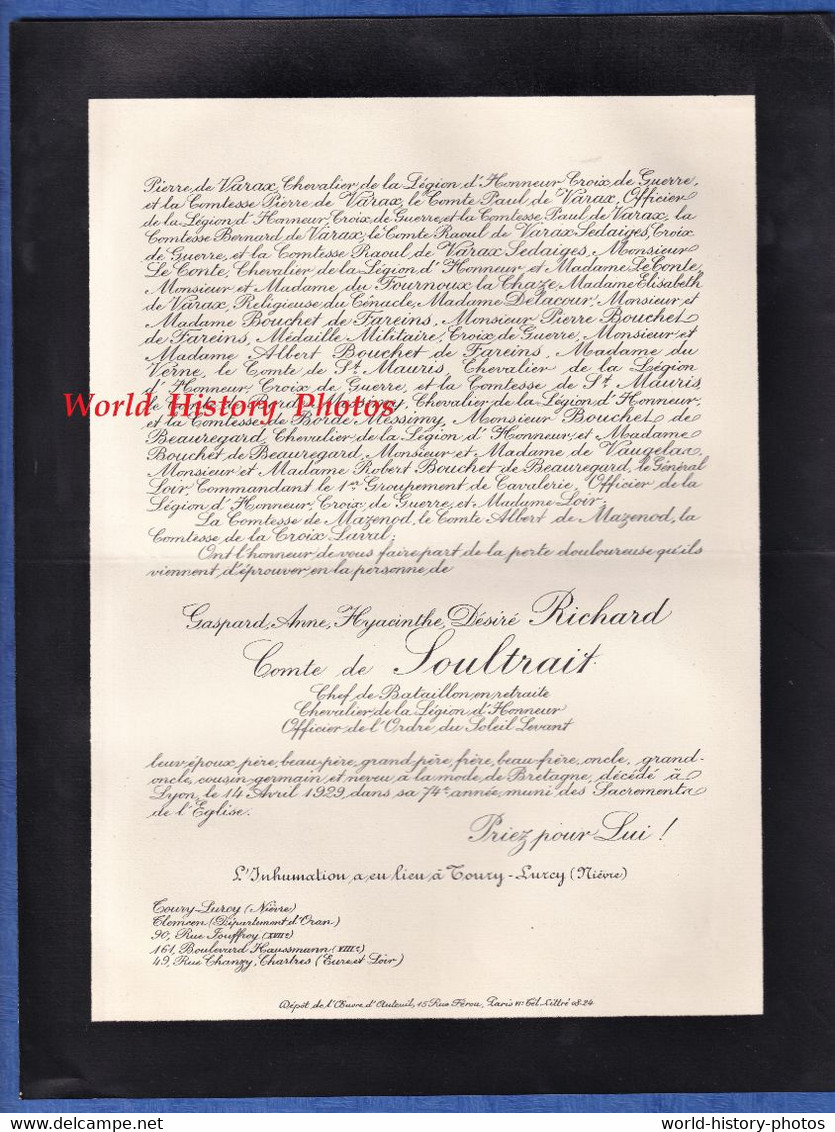 Pierre de Varax, Chevalier de la Légion d'Honneur, Croix de Guerre,
et la Comtesse Pierre de Varax, le Comte Paul de Varax, Officier
de la Légion d'Honneur, Croix de Guerre, et la Comtesse Paul de Varax, la
Comtesse Bernard de Varax, le Comte Raoul de Varax Sedaiges, Croix
de Guerre, et la Comtesse Raoul de Varax Sedaiges, Monsieur
Le Conte, Chevalier de la Légion d'Honneur et Madame Le Conte,
Monsieur et Madame du Fournoux la Chaze, Madame Elisabeth
de Varax, Religieuse du Cénacle, Madame Delacour, Monsieur et
Madame Bouchet de Fareins, Monsieur Pierre Bouchet
de Fareins, Médaille Militaire, Croix de Guerre, Monsieur et
Madame Albert Bouchet de Fareins, Madame du
Verne, le Comte de St Mauris, Chevalier de la Légion
d'Honneur, Croix de Guerre, et la Comtesse de St Mauris,
World History Photos
Chevalier de la Légion d'Honneur,
et la Comtesse de Borde Messimy, Monsieur Bouchet de
Beauregard, Chevalier de la Légion d'Honneur, et Madame
Bouchet de Beauregard, Monsieur et Madame de Vaugelas,
Monsieur et Madame Robert Bouchet de Beauregard, le Général
Loir, Commandant le 1er Groupement de Cavalerie, Officier de la
Légion d'Honneur, Croix de Guerre, et Madame Loir;
La Comtesse de Mazenod, le Comte Albert de Mazenod, la
Comtesse de la Croix Laval;
Ont l'honneur de vous faire part de la perte douloureuse qu'ils
viennent d'éprouver en la personne de
Gaspard, Anne, Hyacinthe, Désiré Richard
Comte de Soultrait
Chef de Bataillon en retraite
Chevalier de la Légion d'Honneur
Officier de l'Ordre du Soleil Levant
leur époux, père, beau-père, grand-père, frère, beau-frère, oncle, grand-
oncle, cousin-germain et neveu à la mode de Bretagne, décédé à
Lyon, le 14 Avril 1929, dans sa 74e année, muni des Sacrements
de l'Eglise.
Priez pour Lui !
L'Inhumation a eu lieu à Toury-Lurcy (Nièvre)
Toury-Lurcy (Nièvre)
Tlemcen (Département d'Oran)
90, Rue Jouffroy (XVIIe)
161, Boulevard Haussmann (VIIIe)
49, Rue Chanzy, Chartres (Eure et Loir)
Dépôt de l'Œuvre d'Auteuil, 15 Rue Férou, Paris VIe Tél. Littré 08-24
world-history-photos